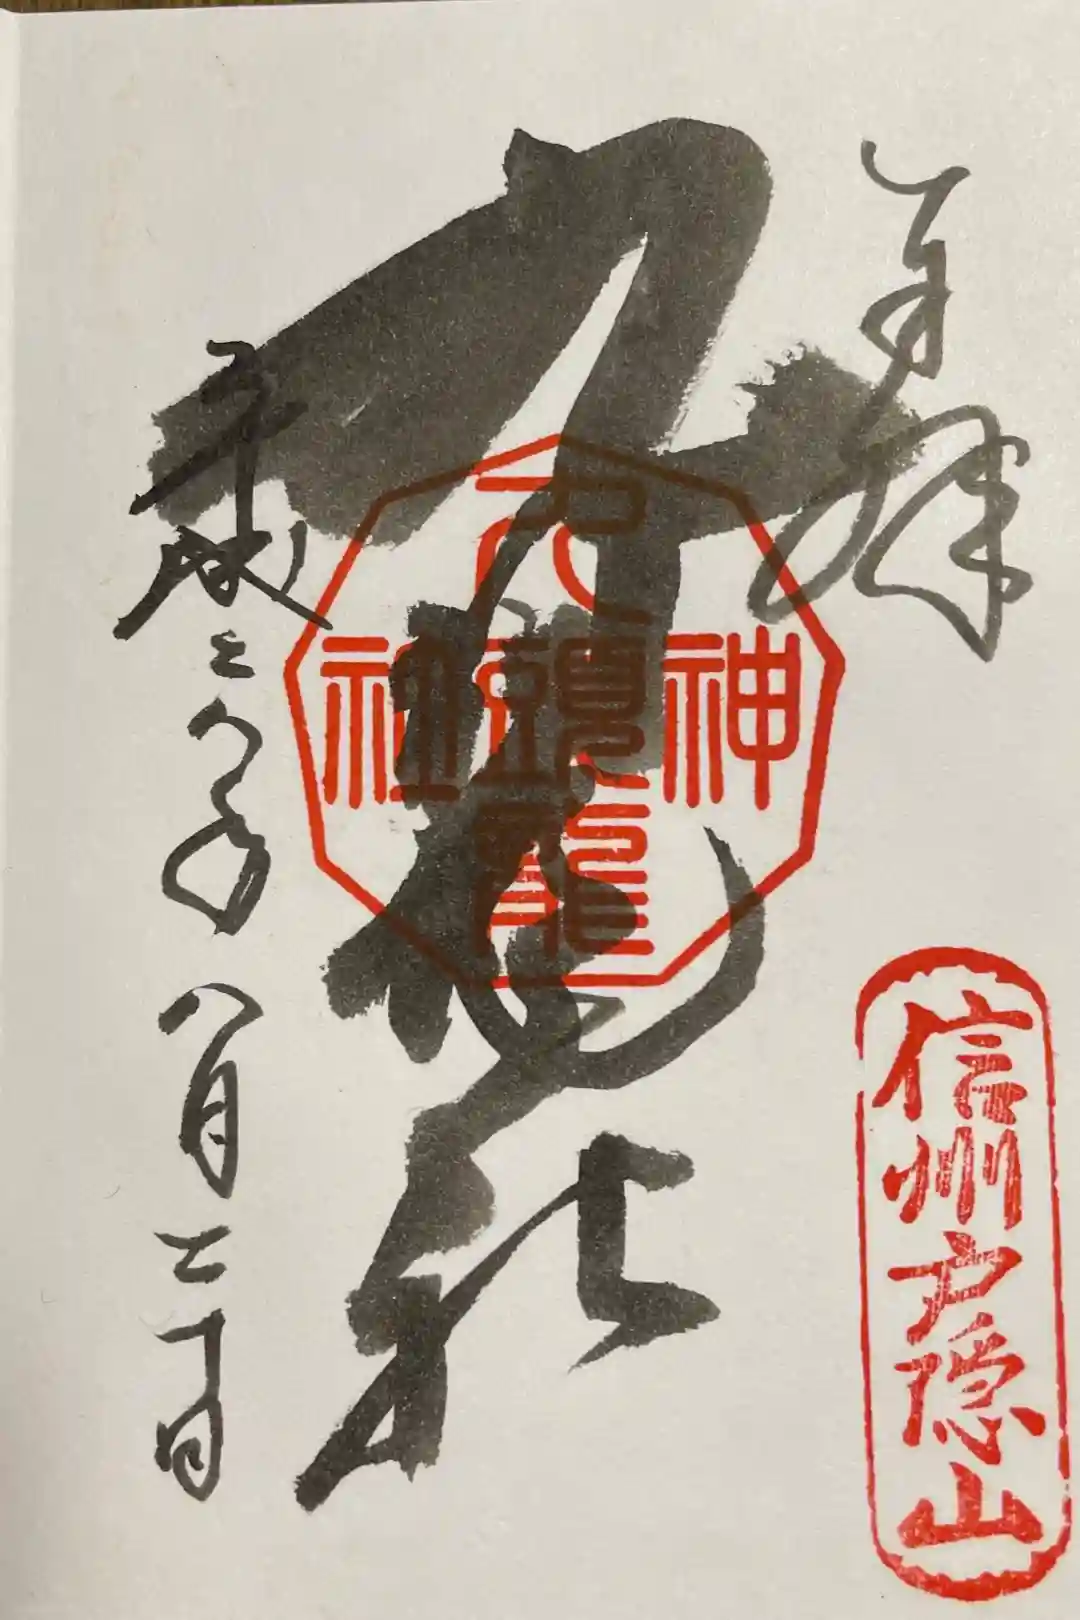 奉拝
九頭龍社
平成二八年八月二十日
九頭龍
神社
信州戸隠山